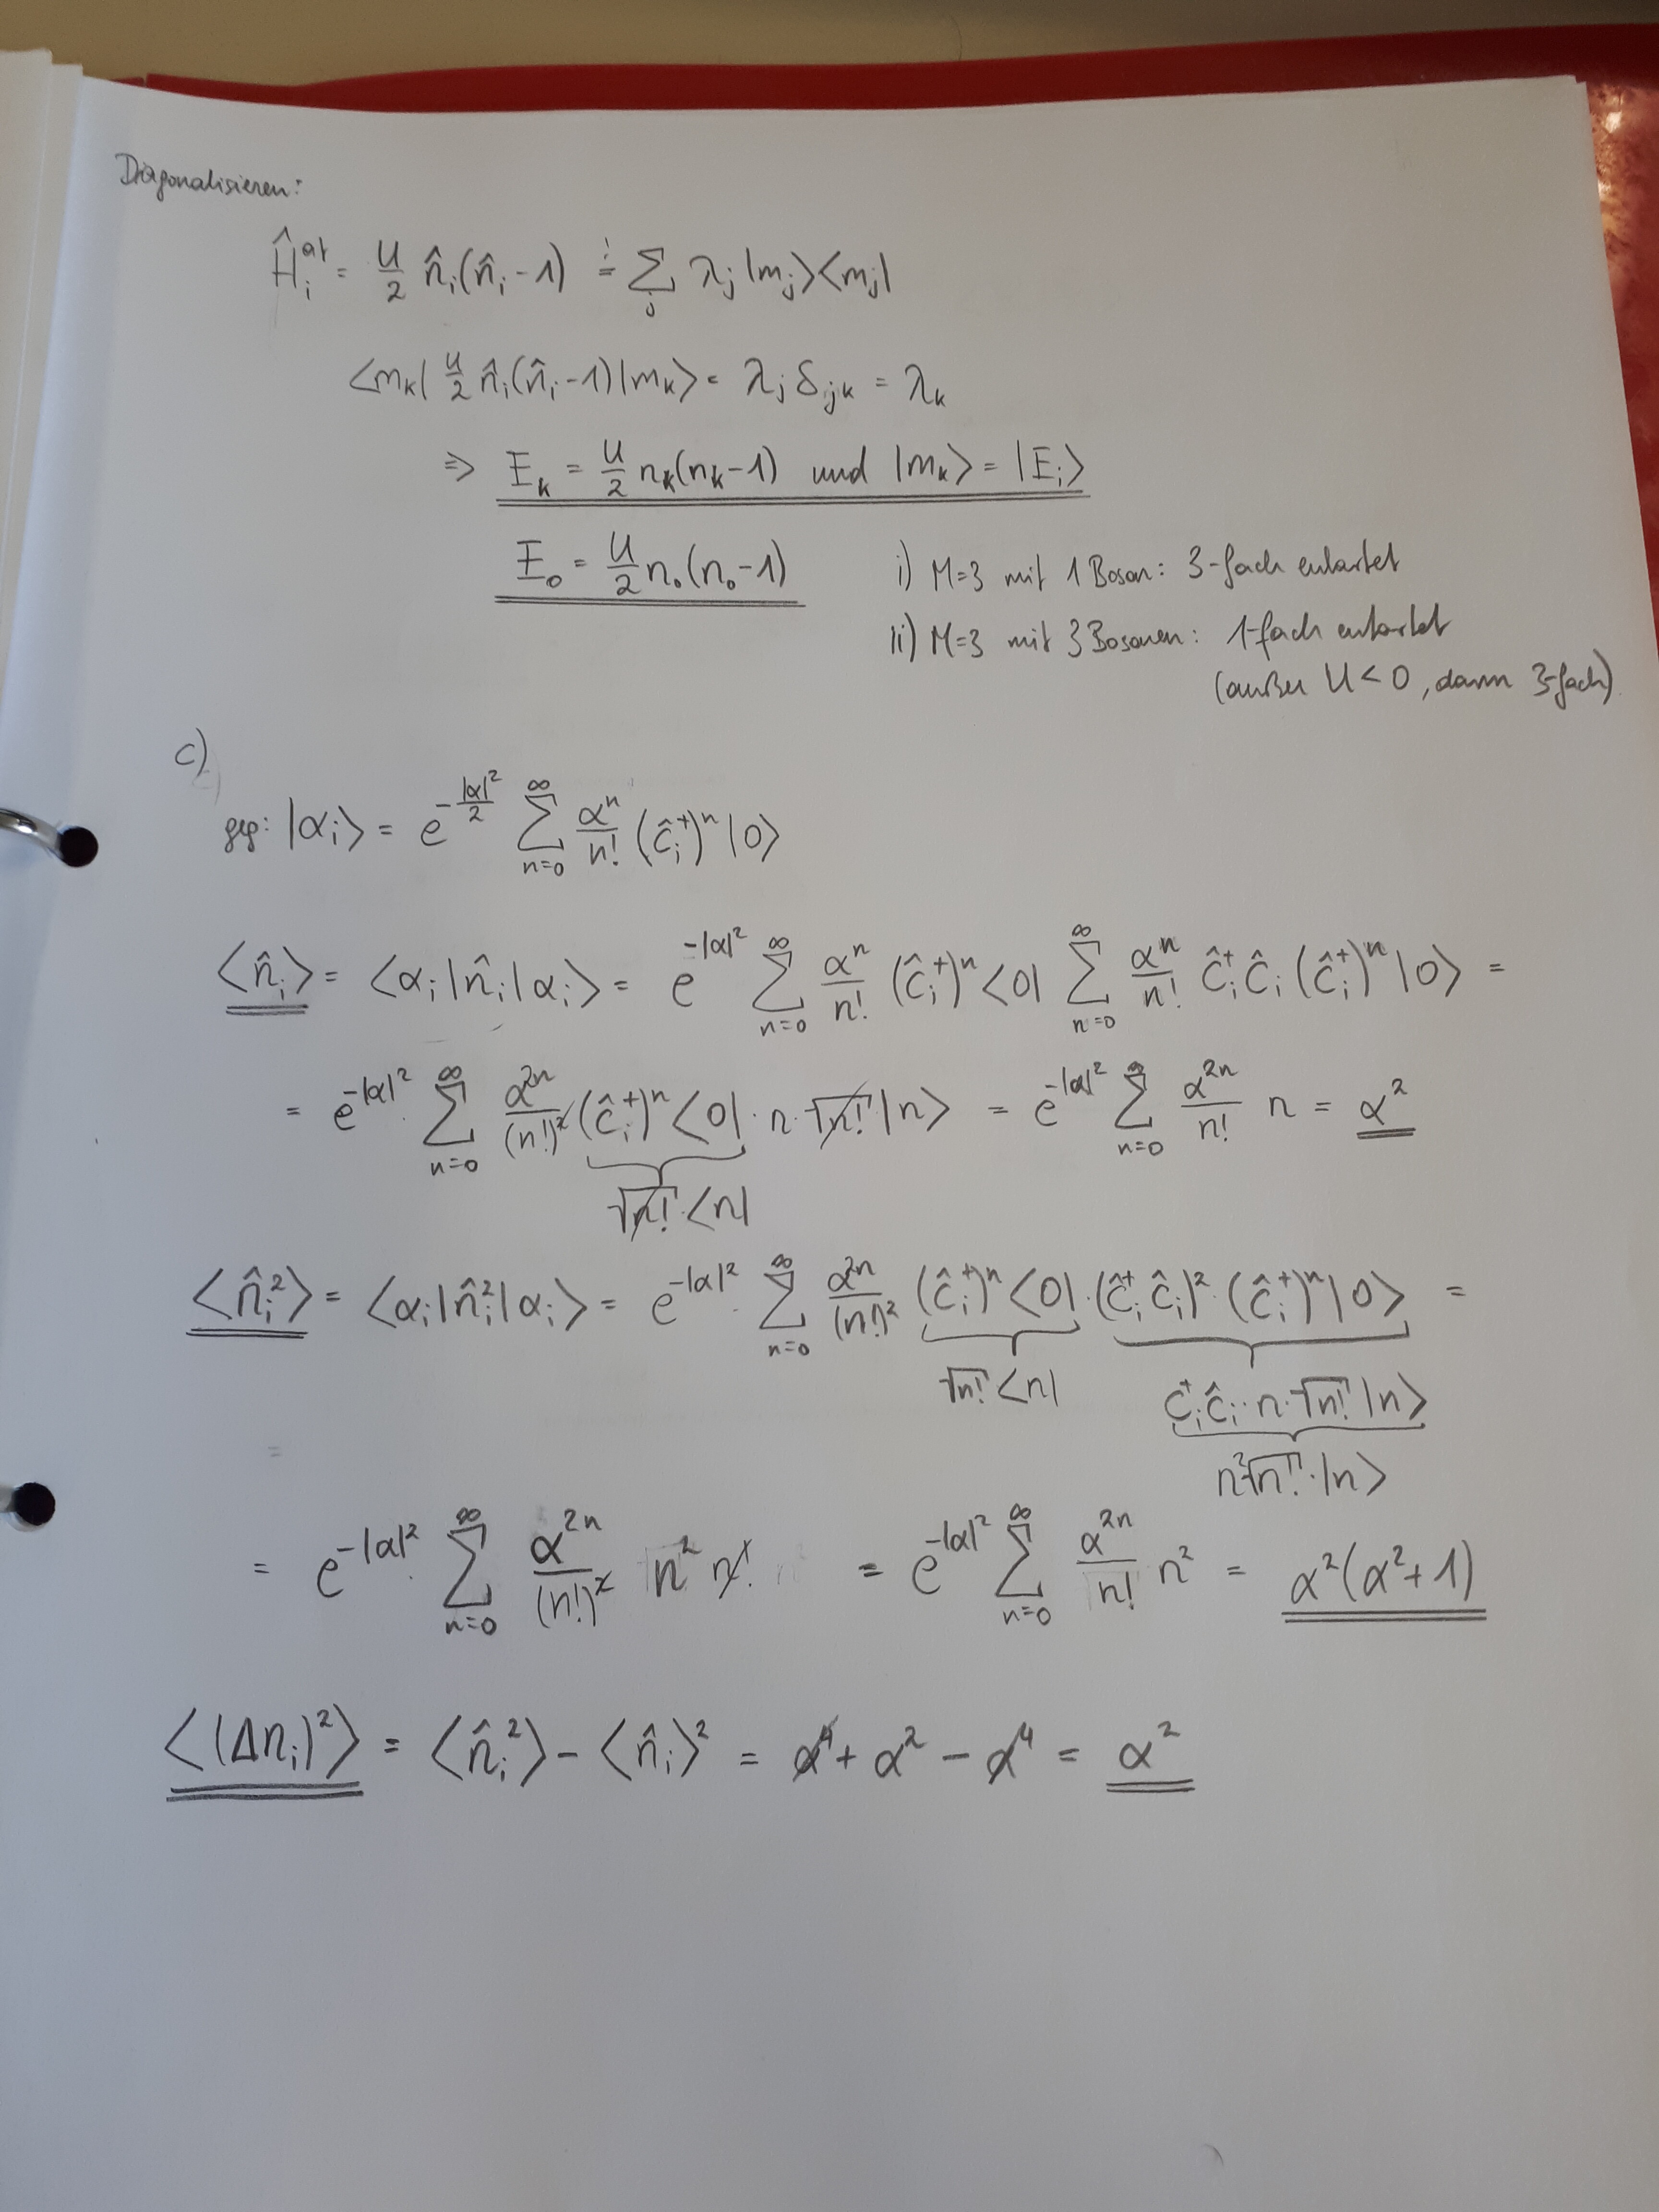 Diagonalisieren:
Ĥᵢᵃᵗ = U/2 n̂ᵢ(n̂ᵢ - 1) =! Σⱼ λⱼ |mⱼ⟩⟨mⱼ|
⟨mₖ| U/2 n̂ᵢ(n̂ᵢ - 1) |mₖ⟩ = λⱼ δⱼₖ = λₖ
⇒ Eₖ = U/2 nₖ(nₖ - 1) und |mₖ⟩ = |Eᵢ⟩
E₀ = U/2 n₀(n₀ - 1)
i) M=3 mit 1 Boson: 3-fach entartet
ii) M=3 mit 3 Bosonen: 1-fach entartet
(außer U < 0, dann 3-fach)
c)
geg: |αᵢ⟩ = e^(-|α|²/2) Σ_{n=0}^∞ αⁿ/n! (ĉᵢ⁺)ⁿ |0⟩
⟨n̂ᵢ⟩ = ⟨αᵢ|n̂ᵢ|αᵢ⟩ = e^(-|α|²) Σ_{n=0}^∞ αⁿ/n! (ĉᵢ⁺)ⁿ ⟨0| Σ_{n=0}^∞ αⁿ/n! ĉᵢ⁺ ĉᵢ (ĉᵢ⁺)ⁿ |0⟩ =
= e^(-|α|²) Σ_{n=0}^∞ α²ⁿ/(n!)² (ĉᵢ⁺)ⁿ ⟨0| · n · √n! |n⟩ = e^(-|α|²) Σ_{n=0}^∞ α²ⁿ/n! n = α²
√n! · ⟨n|
⟨n̂ᵢ²⟩ = ⟨αᵢ|n̂ᵢ²|αᵢ⟩ = e^(-|α|²) · Σ_{n=0}^∞ α²ⁿ/(n!)² (ĉᵢ⁺)ⁿ ⟨0| · (ĉᵢ⁺ ĉᵢ)² · (ĉᵢ⁺)ⁿ |0⟩ =
√n! ⟨n| ĉᵢ⁺ ĉᵢ · n · √n! |n⟩
n² √n! · |n⟩
= e^(-|α|²) · Σ_{n=0}^∞ α²ⁿ/(n!)² n² n! = e^(-|α|²) Σ_{n=0}^∞ α²ⁿ/n! n² = α²(α² + 1)
⟨(Δnᵢ)²⟩ = ⟨n̂ᵢ²⟩ - ⟨n̂ᵢ⟩² = α⁴ + α² - α⁴ = α²